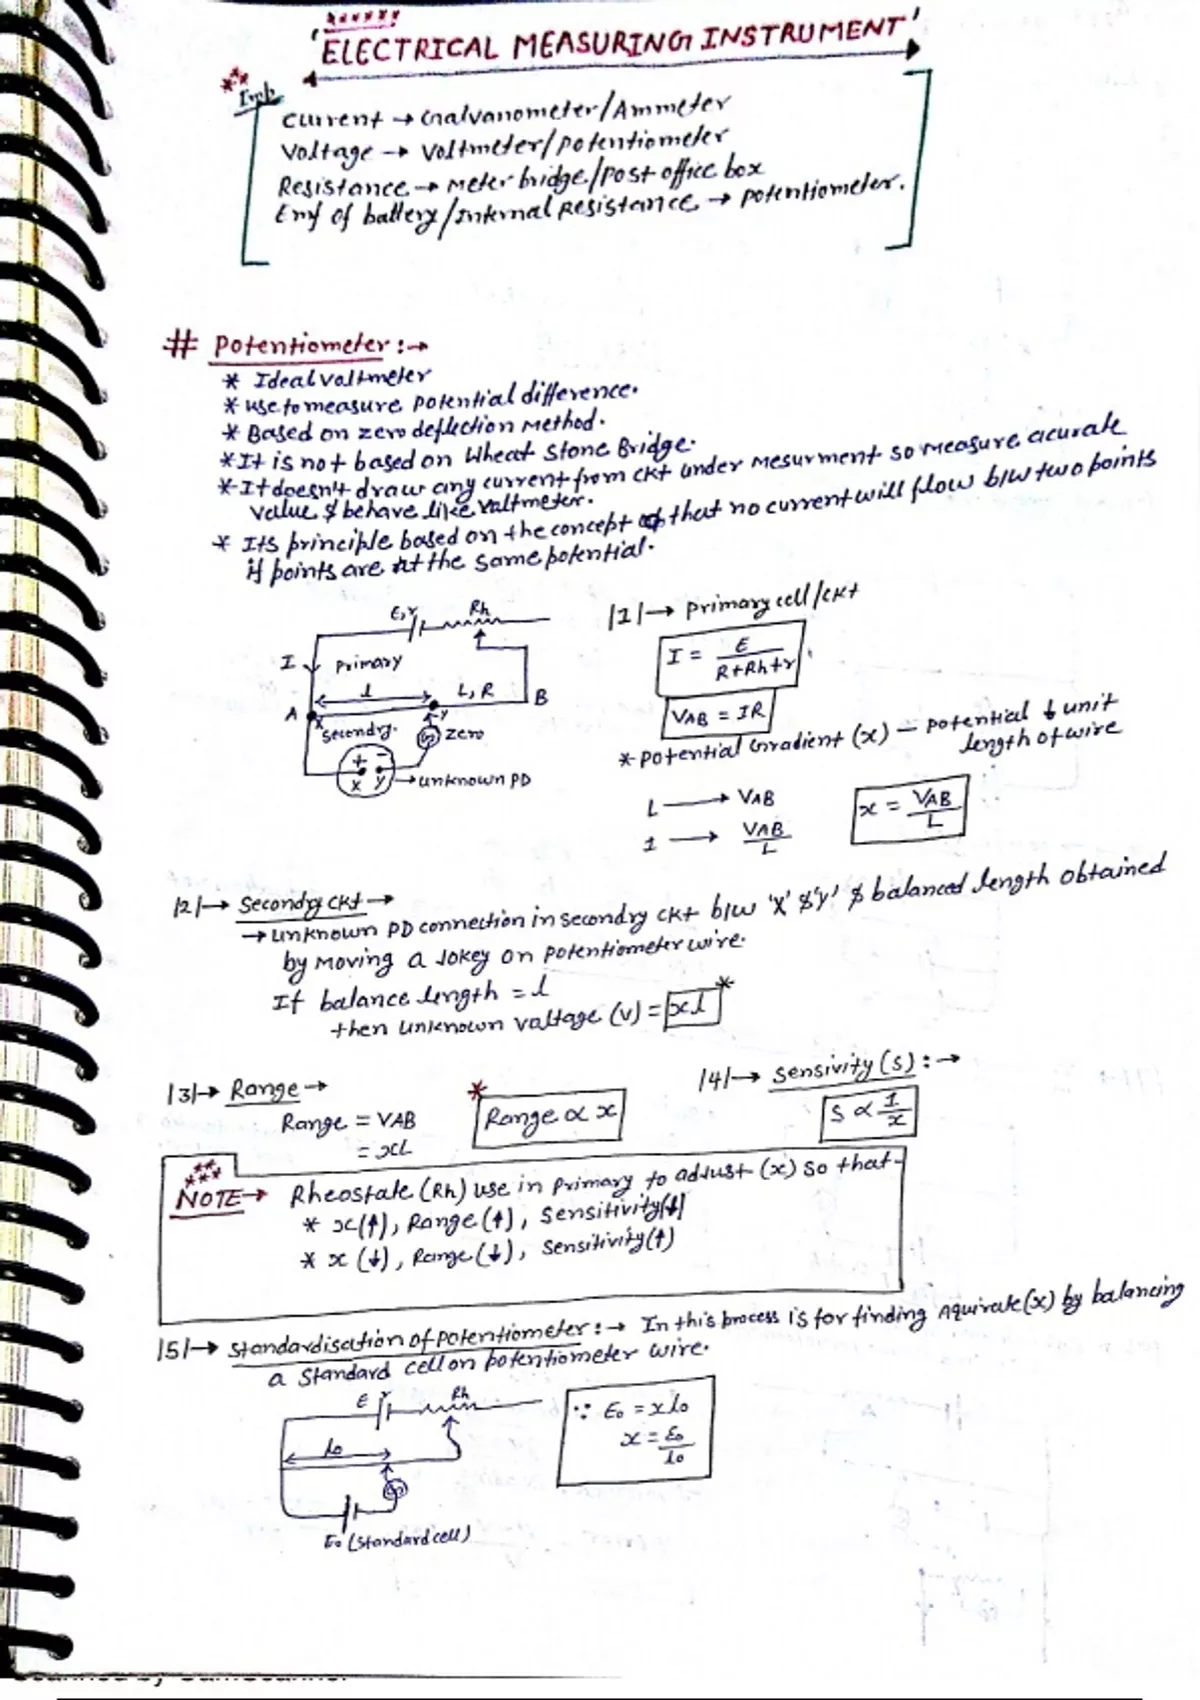 'ELECTRICAL MEASURING INSTRUMENT'
*** Imp
Current → Galvanometer/Ammeter
Voltage → Voltmeter/Potentiometer
Resistance → Meter bridge/Post office box
Emf of battery/Internal Resistance → potentiometer.
# Potentiometer :→
* Ideal valtmeter
* use to measure potential difference.
* Based on zero deflection Method.
* It is not based on Wheat Stone Bridge.
* It doesn't draw any current from ckt under Mesurment so measure acurate
value & behave like valtmeter.
* Its principle based on the concept of that no current will flow b/w two points
if points are at the same potential.
E,r Rh
I Primary
l L, R
A B
x y
secondry. G zero
+ −
x y → unknown PD
|1|→ Primary cell/ckt
I = E/(R+Rh+r)
VAB = IR
* Potential Gradient (x) − Potential ↓ unit
length of wire
L → VAB
1 → VAB/L
x = VAB/L
|2|→ Secondry ckt →
→ unknown PD connection in secondry ckt b/w 'x' & 'y' & balanced length obtained
by moving a Jokey on potentiometer wire.
If balance length = l
then unknown valtage (v) = xl *
|3|→ Range →
Range = VAB
= xL
* Range ∝ x
|4|→ Sensivity (S) : →
S ∝ 1/x
*****
NOTE → Rheostate (Rh) use in Primary to adjust (x) so that-
* x(↑), Range (↑), Sensitivity(↓)
* x (↓), Range (↓), Sensitivity (↑)
|5|→ Standardisation of potentiometer : → In this process is for finding Aquirate (x) by balancing
a Standard cell on potentiometer wire.
E r Rh
l₀
G
E₀ (Standard cell)
∵ E₀ = x l₀
x = E₀/l₀